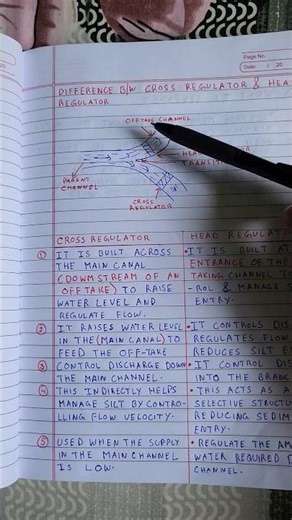 Page No.
Date / 20
DIFFERENCE B/W CROSS REGULATOR & HEA
REGULATOR
OFFTAKE CHANNEL
HEA
PARENT
CHANNEL
CROSS
REGULATOR
CROSS REGULATOR
HEAD REGULATO
① IT IS BUILT ACROSS
THE MAIN CANAL
(DOWNSTREAM OF AN
OFFTAKE) TO RAISE
WATER LEVEL AND
REGULATE FLOW.
• IT IS BUILT AT
ENTRANCE OF THE
TAKING CHANNEL TO
-ROL & MANAGE S
ENTRY.
② IT RAISES WATER LEVEL
IN THE (MAIN CANAL) TO
FEED THE OFF-TAKE
• IT CONTROLS DIS
REGULATES FLOW
REDUCES SILT E
③ CONTROL DISCHARGE DOWN
THE MAIN CHANNEL.
• IT CONTROL DIS
INTO THE BRANC
④ THIS INDIRECTLY HELPS
MANAGE SILT BY CONTRO-
LLING FLOW VELOCITY.
• THIS ACTS AS A
SELECTIVE STRUCTU
REDUCING SEDIM
ENTRY.
⑤ USED WHEN THE SUPPLY
IN THE MAIN CHANNEL
IS LOW.
• REGULATE THE AM
WATER REQUIRED
CHANNEL.